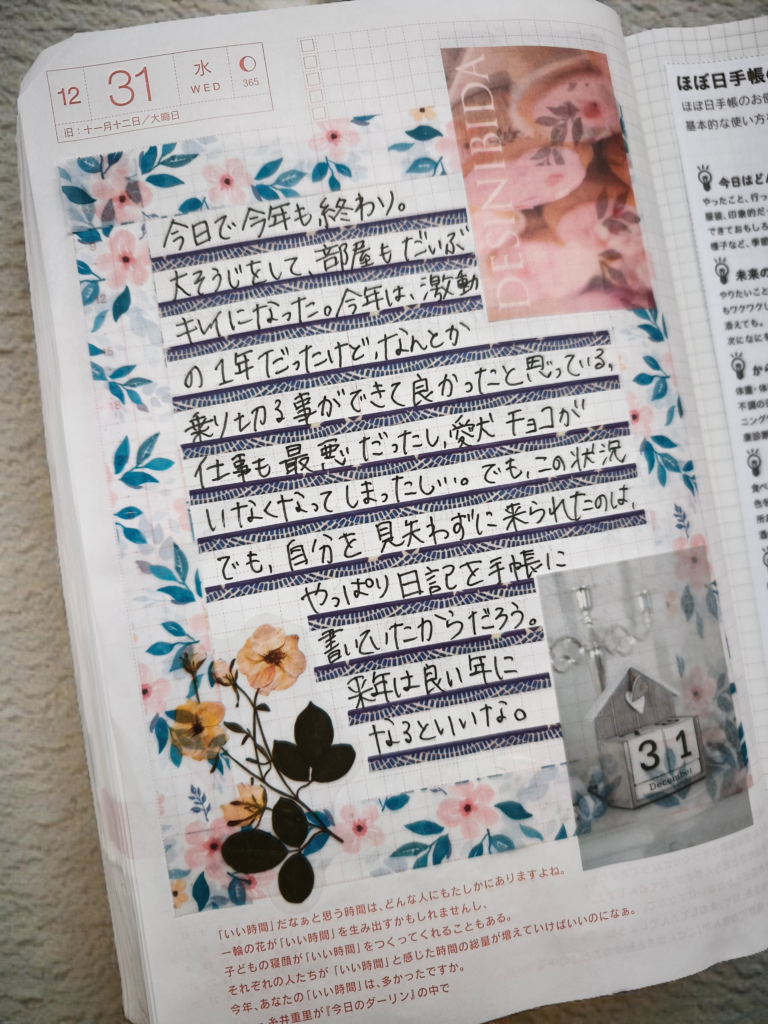 12 31 水 WED 365
旧：十一月十二日／大晦日
DESINIBIDA
今日で今年も終わり。
大そうじをして、部屋もだいぶ
キレイになった。今年は、激動
の1年だったけど、なんとか
乗り切る事ができて良かったと思っている。
仕事も最悪だったし、愛犬チョコが
いなくなってしまったし…。でも、この状況
でも、自分を見失わずに来られたのは、
やっぱり日記を手帳に
書いていたからだろう。
来年は良い年に
なるといいな。
31
December
「いい時間」だなぁと思う時間は、どんな人にもたしかにありますよね。
一輪の花が「いい時間」を生み出すかもしれませんし、
子どもの寝顔が「いい時間」をつくってくれることもある。
それぞれの人たちが「いい時間」と感じた時間の総量が増えていけばいいのになぁ。
今年、あなたの「いい時間」は、多かったですか。
糸井重里が『今日のダーリン』の中で
ほぼ日手帳の
ほぼ日手帳のお使
基本的な使い方を
今日はどん
やったこと、行っ
服装、印象的だ
できておもしろ
様子など、季節
未来の
やりたいこと
もワクワクし
添えても。
次になにを
から
体重・体
不調の日
ニング
康診断